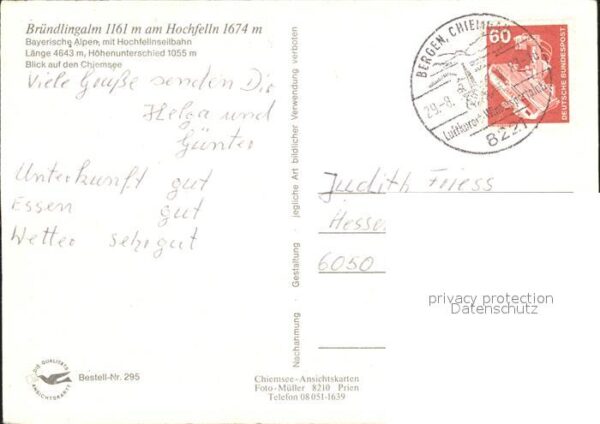 Bründlingalm 1161 m am Hochfelln 1674 m
Bayerische Alpen, mit Hochfellnseilbahn
Länge 4643 m, Höhenunterschied 1055 m
Blick auf den Chiemsee
Viele Grüße senden Dir
Helga und
Günter
Unterkunft gut
Essen gut
Wetter sehr gut
DIE QUALITÄTS
ANSICHTSKARTE
Bestell-Nr. 295
Nachahmung · Gestaltung · jegliche Art bildlicher Verwendung verboten
BERGEN, CHIEMGAU
29.-8.
Luftkurort
8221
60
DEUTSCHE BUNDESPOST
Judith Friess
Hesse
6050
privacy protection
Datenschutz
Chiemsee-Ansichtskarten
Foto-Müller 8210 Prien
Telefon 08051-1639